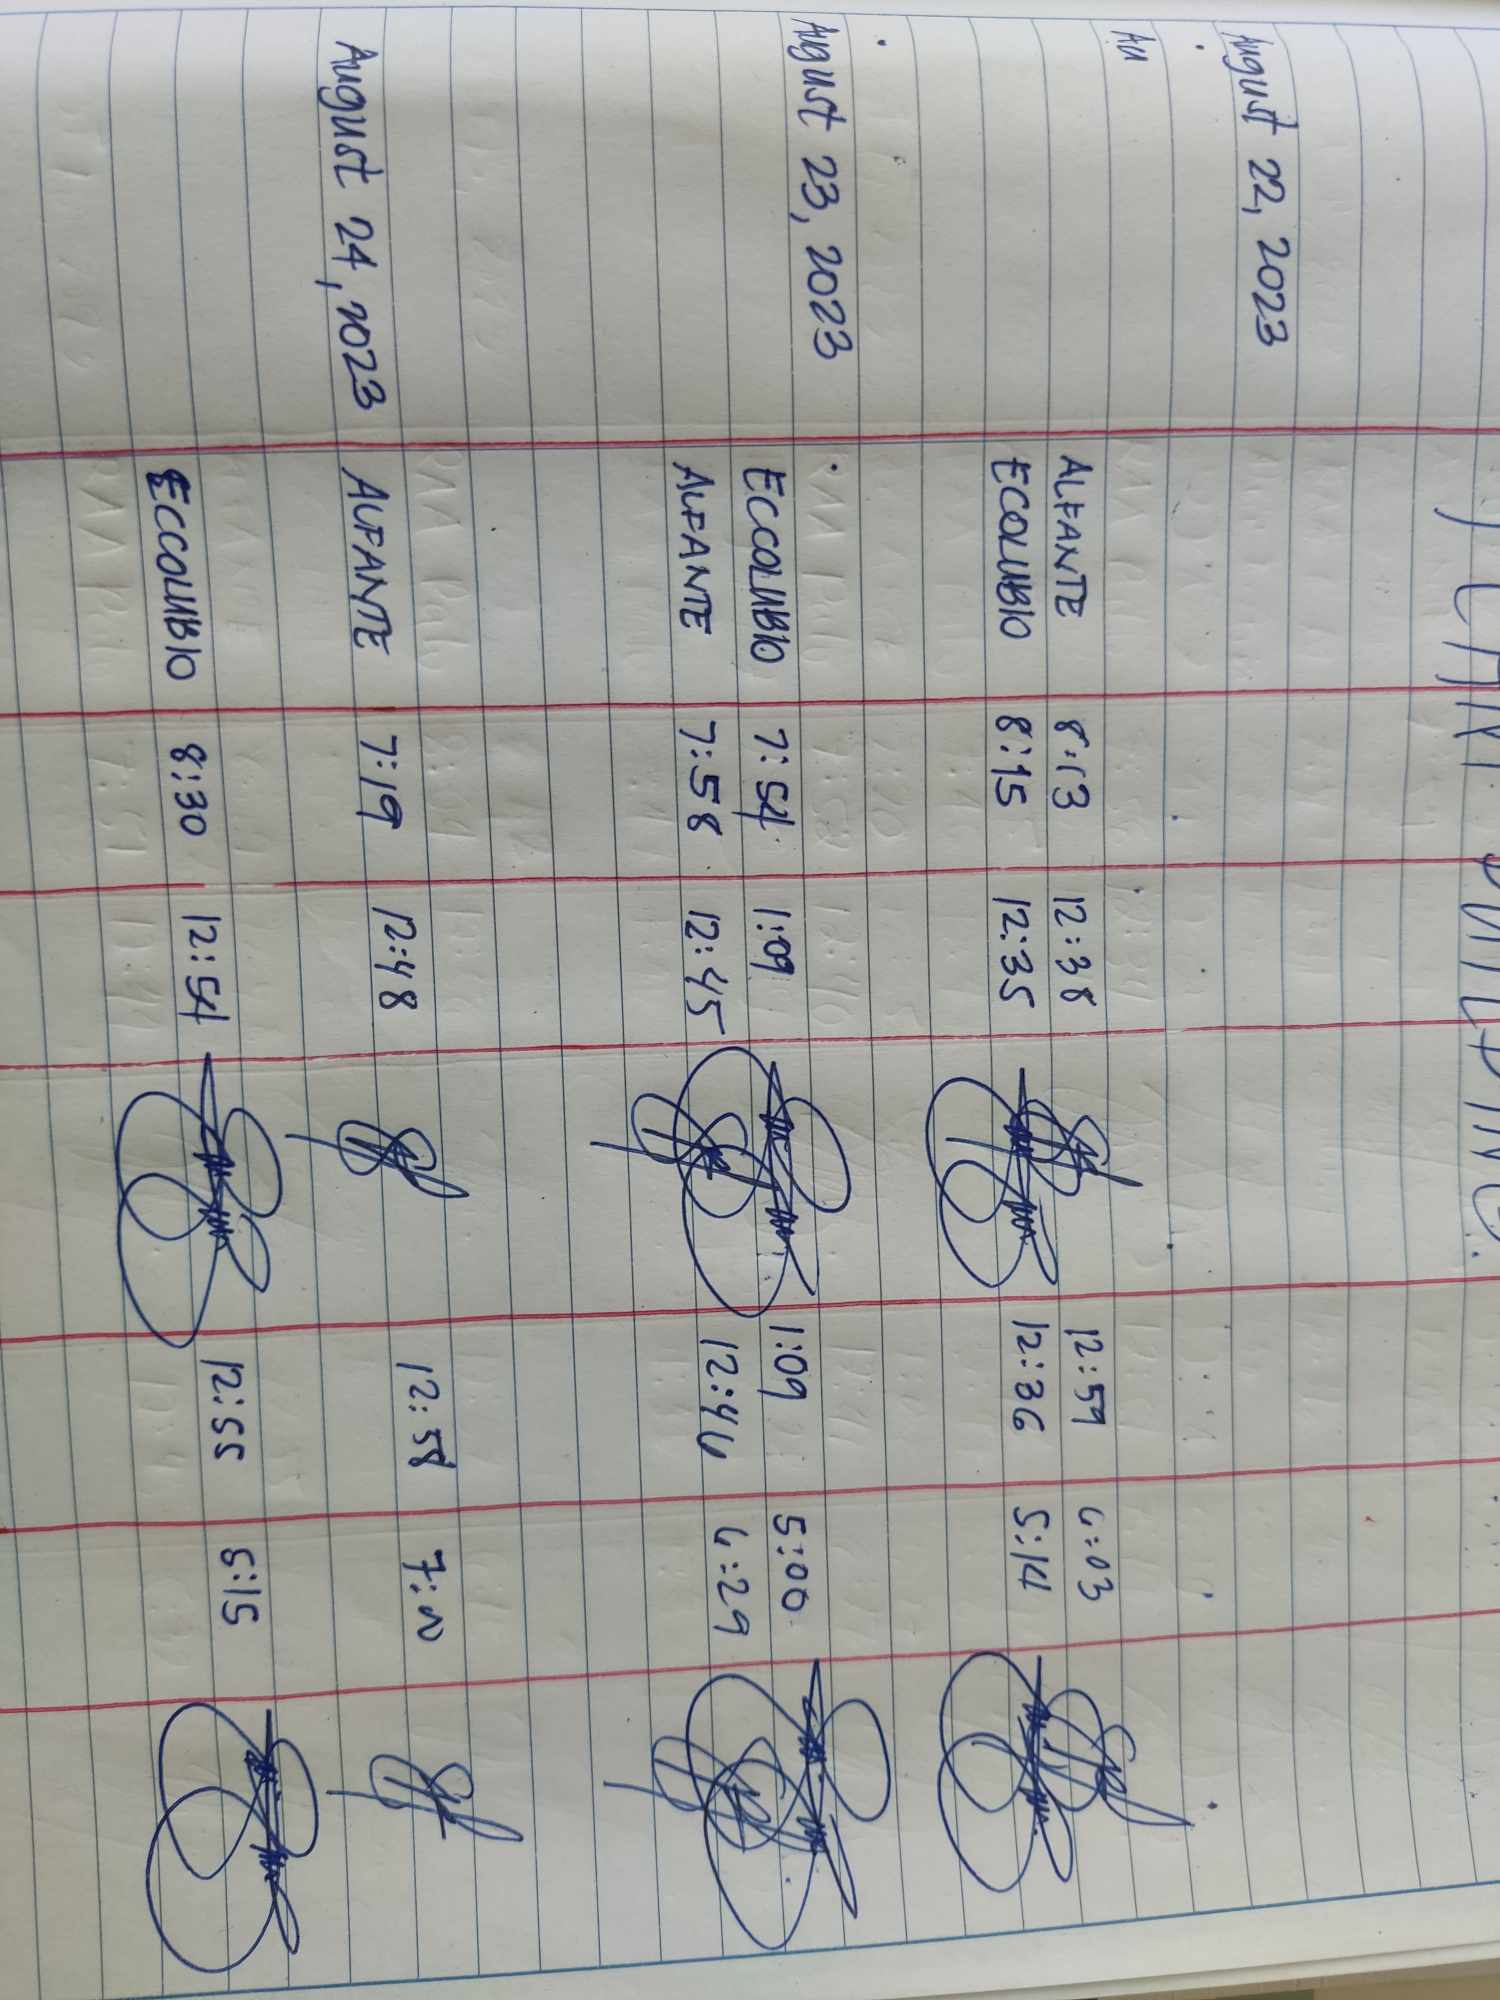 PLANT BUILDING.
August 22, 2023
Au
ALFANTE 8:13 12:38 12:59 6:03
ECOLUBIO 8:15 12:35 12:36 5:14
August 23, 2023
ECCOLUBIO 7:54 1:09 1:09 5:00
ALFANTE 7:58 12:45 12:46 6:29
August 24, 2023
ALFANTE 7:19 12:48 12:58
ECCOLUBIO 8:30 12:54 12:55 5:15